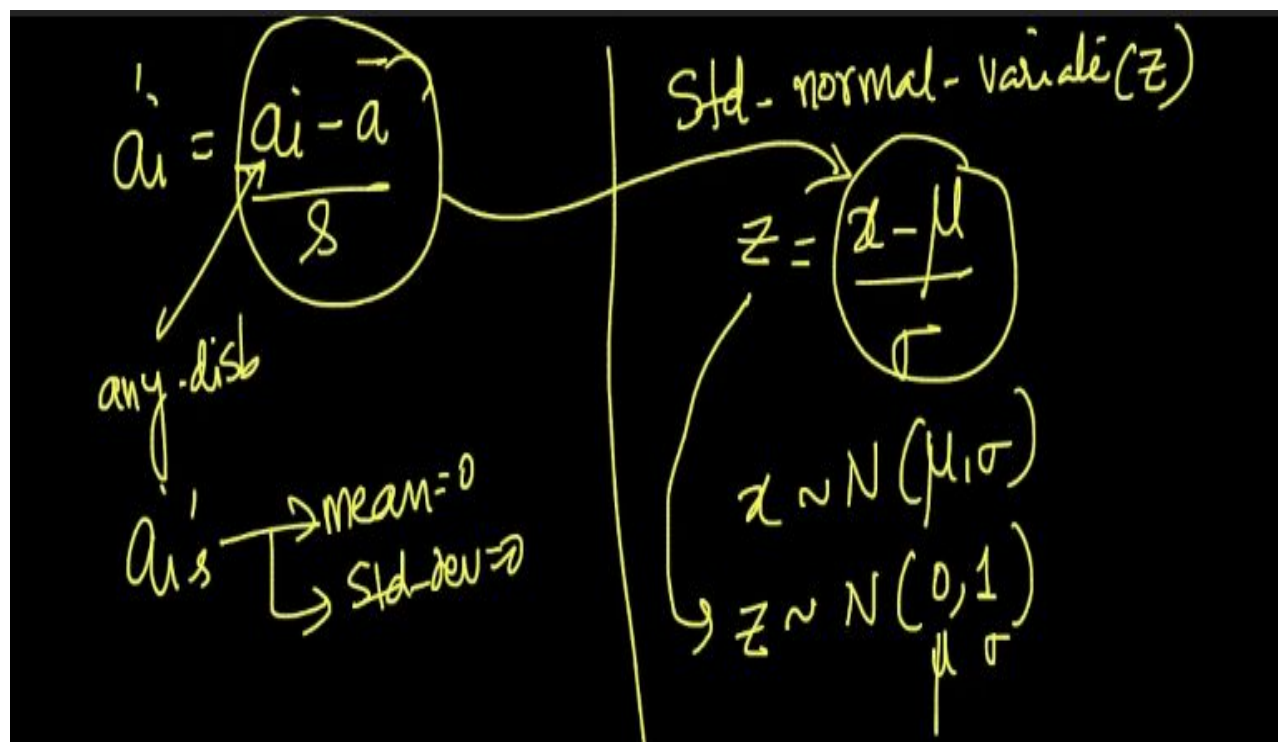 ai' = ai - a̅
s
any-disb
ai's → mean=0
→ std-dev=0
Std-normal-variate(Z)
z = x-μ
σ
x ~ N(μ,σ)
z ~ N(0,1)
μ σ